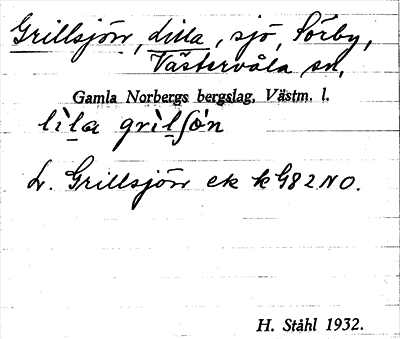 Grillsjön, lilla, sjö, Sörby,
Västervåla sn,
Gamla Norbergs bergslag, Västm. l.
lìla grìlʃö̀n
L. Grillsjön ek k G82 NO.
H. Ståhl 1932.